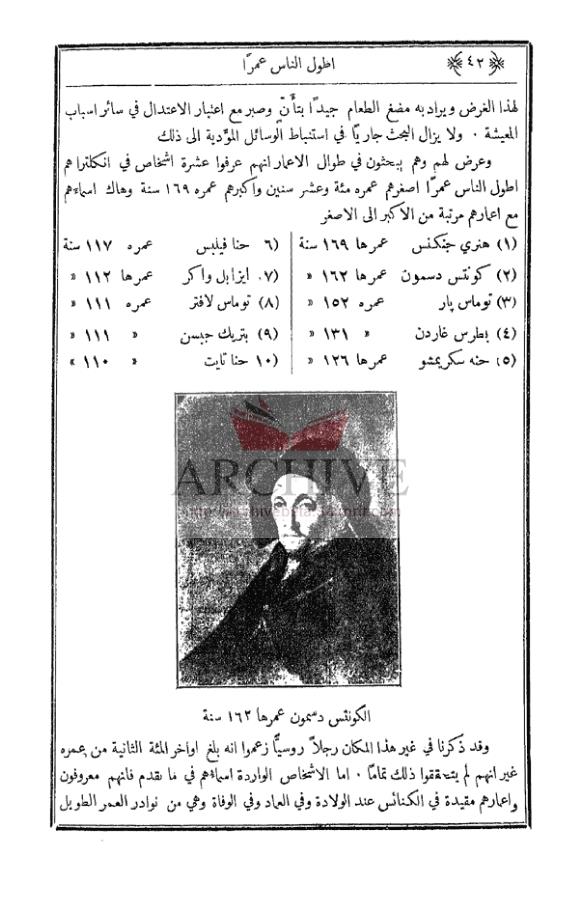 ﴿٤٢﴾ اطول الناس عمرًا
لهذا الغرض ويراد به مضغ الطعام جيدًا بتأنّ وصبر مع اعتبار الاعتدال في سائر اسباب
المعيشة . ولا يزال البحث جاريًا في استنباط الوسائل المؤدية الى ذلك
وعرض لهم وهم يبحثون في طوال الاعمار انهم عرفوا عشرة اشخاص في انكلترا هم
اطول الناس عمرًا اصغرهم عمره مئة وعشر سنين واكبرهم عمره ١٦٩ سنة وهاك اسماءهم
مع اعمارهم مرتبة من الاكبر الى الاصغر
(١) هنري جنكنس عمرها ١٦٩ سنة
(٢) كونتس دسمون عمرها ١٦٢ «
(٣) توماس پار عمره ١٥٢ «
(٤) بطرس غاردن « ١٣١ «
(٥) حنه سكريمشو عمرها ١٢٦ «
(٦ حنا فيلبس عمره ١١٧ سنة
(٧. ايزابل واكر عمرها ١١٢ «
(٨) توماس لافتر عمره ١١١ «
(٩) بتريك جبسن « ١١١ «
(١٠ حنا تايت « ١١٠ «
ARCHIVE
الكونتس دسمون عمرها ١٦٢ سنة
وقد ذكرنا في غير هذا المكان رجلاً روسيًّا زعموا انه بلغ اواخر المئة الثانية من عمره
غير انهم لم يتحققوا ذلك تمامًا . اما الاشخاص الواردة اسماءهم في ما تقدم فانهم معروفون
واعمارهم مقيدة في الكنائس عند الولادة وفي العماد وفي الوفاة وهي من نوادر العمر الطويل